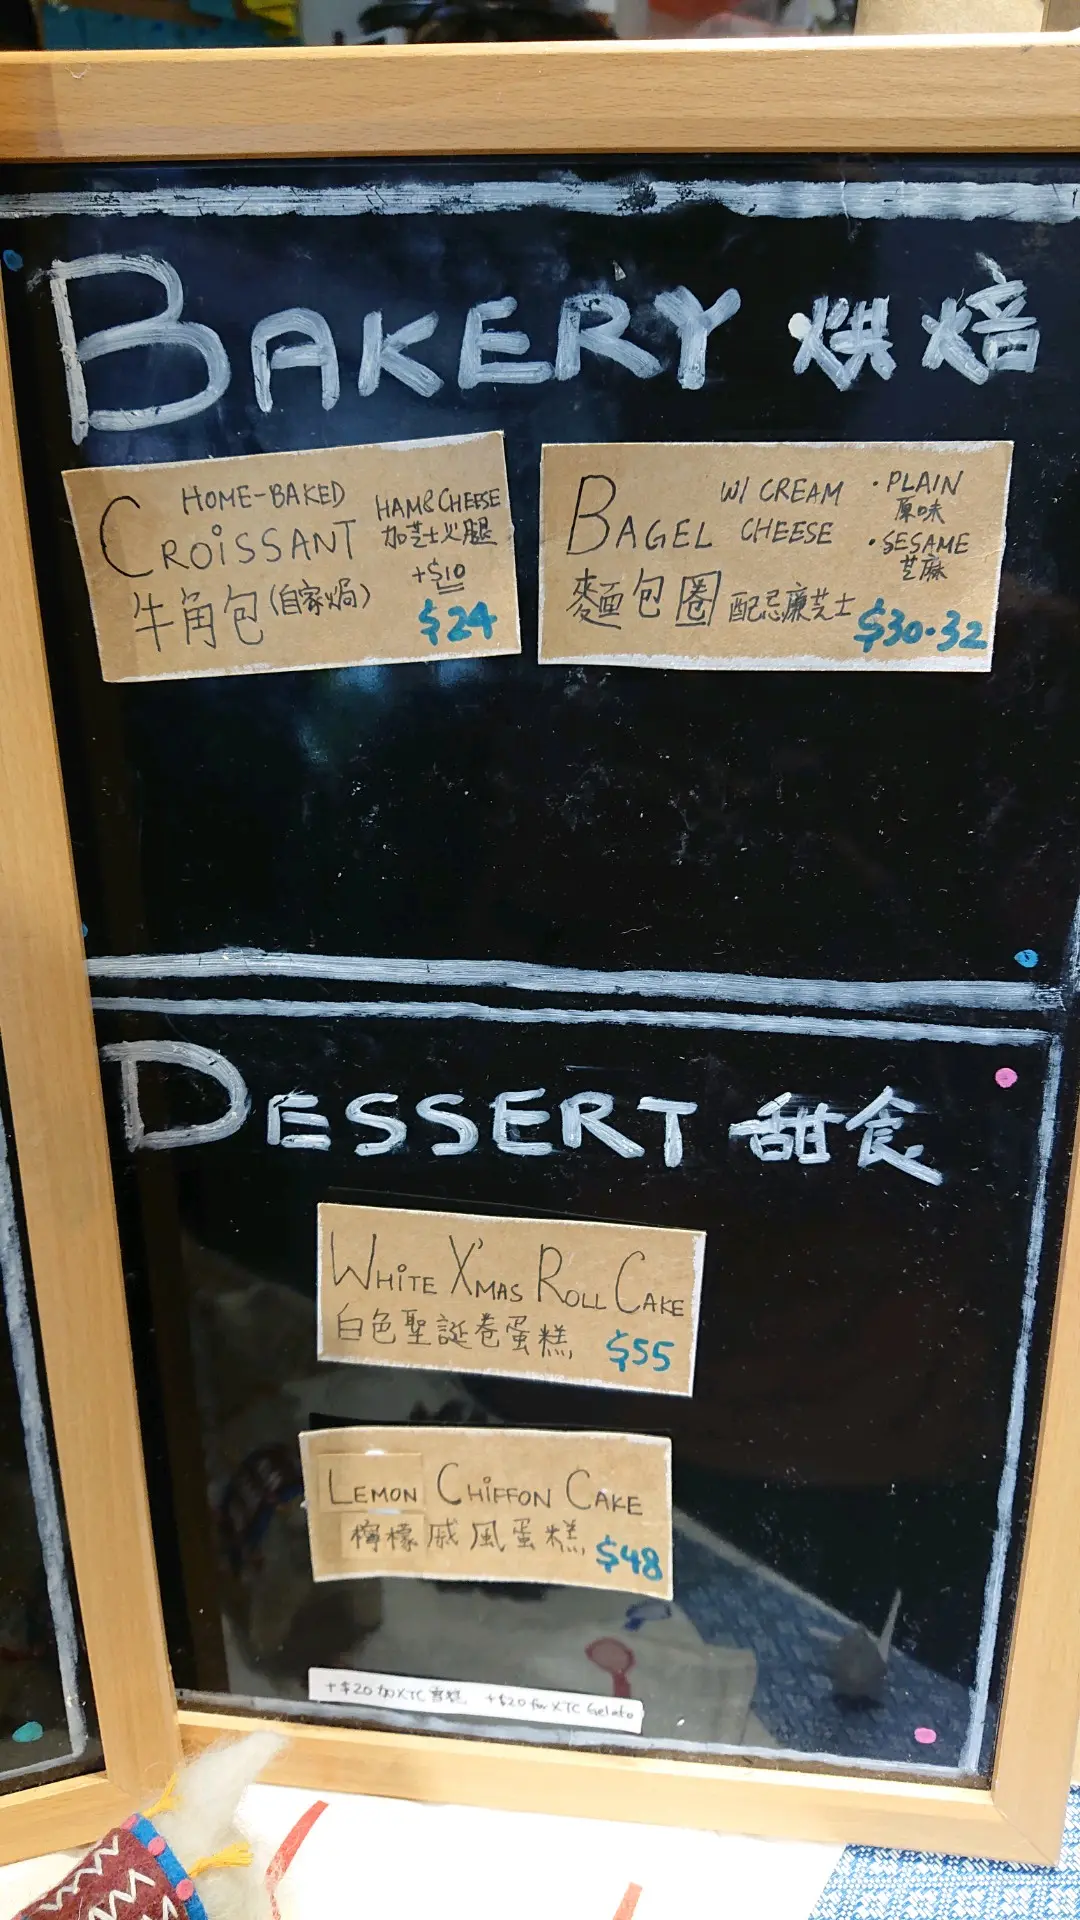 BAKERY 烘焙
HOME-BAKED
CROISSANT
牛角包(自家焗)
HAM&CHEESE
加芝士火腿
+$10
$24
BAGEL
W/ CREAM
CHEESE
• PLAIN
原味
• SESAME
芝麻
麵包圈 配忌廉芝士
$30.32
DESSERT 甜食
WHITE X'MAS ROLL CAKE
白色聖誕卷蛋糕
$55
LEMON CHIFFON CAKE
檸檬戚風蛋糕
$48
+$20 加XTC雪糕 +$20 for XTC Gelato